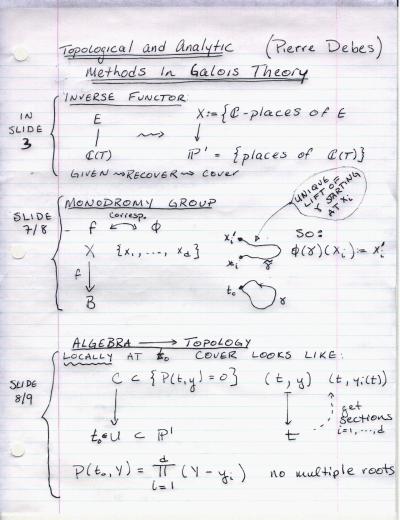 Topological and Analytic (Pierre Debes)
Methods in Galois Theory
IN SLIDE 3
INVERSE FUNCTOR
E X := {ℂ-places of E
ℂ(T) ⇝ ℙ' = {places of ℂ(T)}
GIVEN ⇝ RECOVER ⇝ COVER
SLIDE 7/8
MONODROMY GROUP
UNIQUE LIFT OF γ STARTING AT xi
corresp.
- f ↔ ϕ
X {x₁, ..., x_d}
f
B
xi'
xi γ̃
t₀ γ
SO:
ϕ(γ)(xi) := xi'
ALGEBRA → TOPOLOGY
LOCALLY AT t₀ COVER LOOKS LIKE:
SLIDE 8/9
C ⊂ {P(t,y) = 0} (t, y) (t, yi(t))
get sections i=1,...,d
t₀ ∈ U ⊂ ℙ' t
P(t₀, Y) = ∏_{i=1}^{d} (Y - yi) no multiple roots